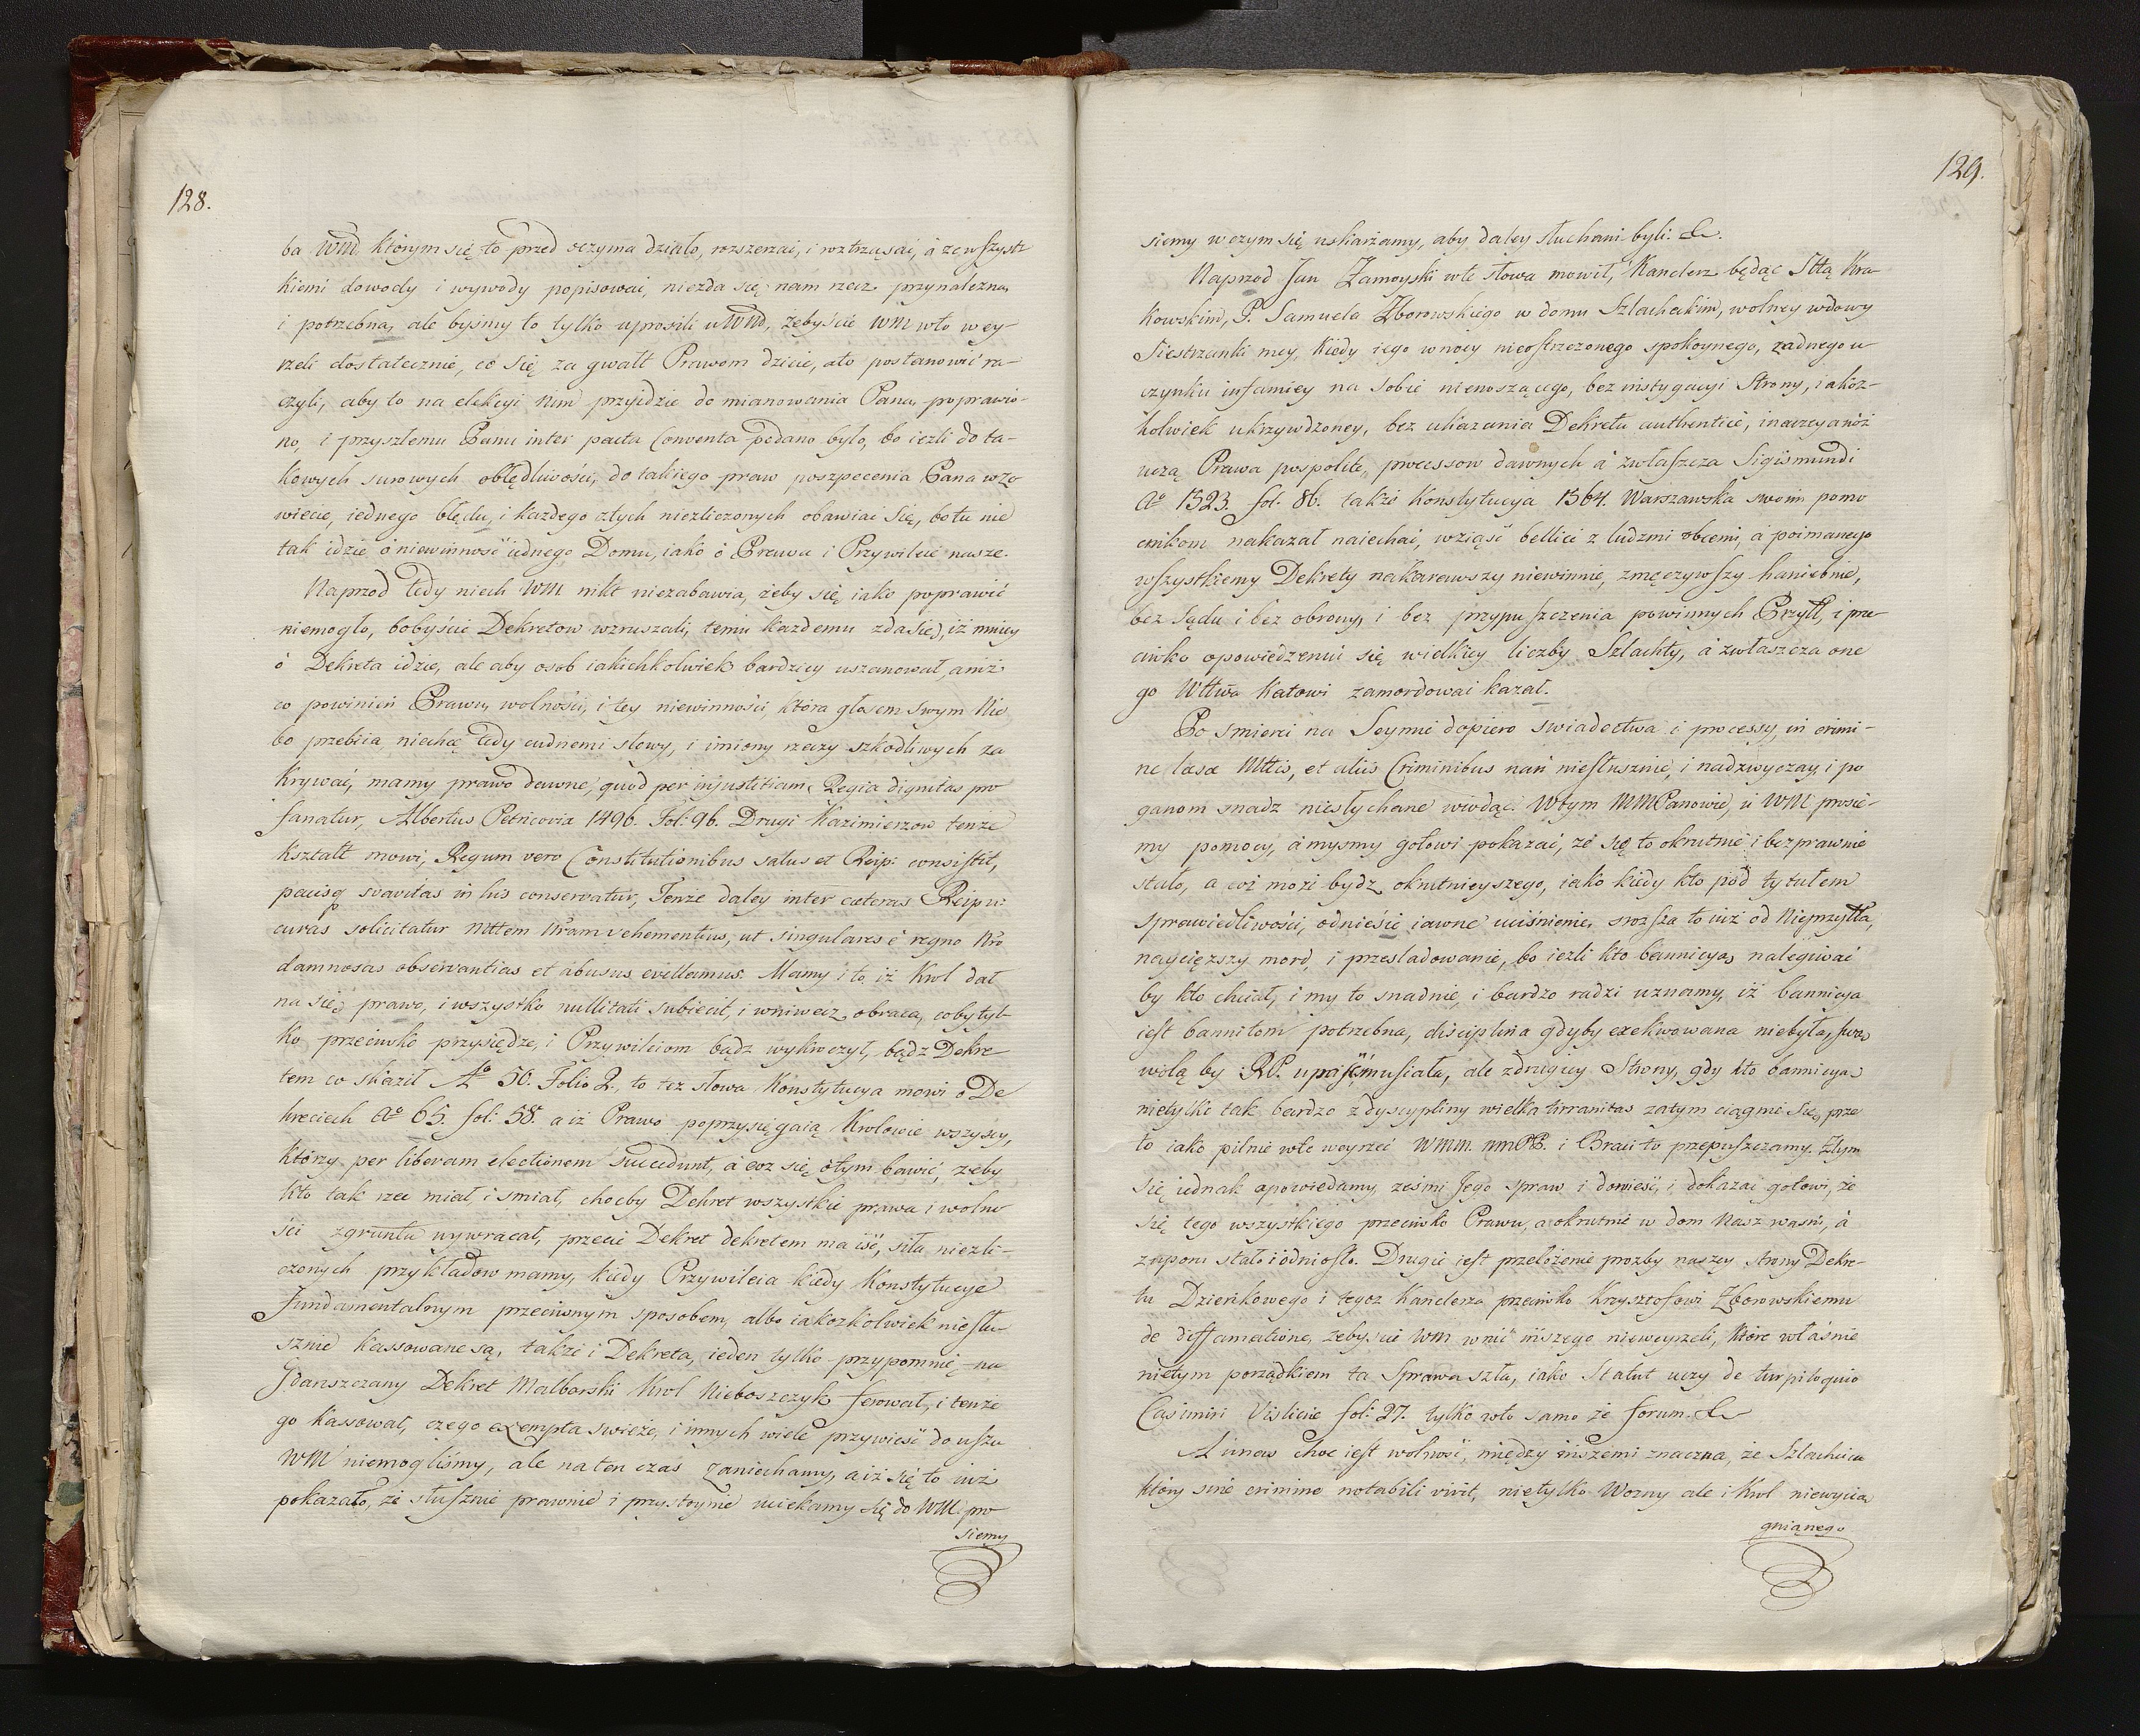 128.
ba WM którym się to przed oczyma działo, rozszerzai, i roztrząsai, á zewszyst
kiemi dowody i wywody popisowai, niezda się nam rzecz przynalezna,
i potrzebna, ale byśmy to tylko uprosili u WM, żebyście WM wto wey-
rzeli dostatecznie, co się za gwałt Prawom dzieie, ato postanowić ra-
czyli, aby to na elekcyi nim przyidzie do mianowania Pana, poprawio-
no, i przyszłemu Panu inter pacta Conventa podano było, bo iezli do ta-
kowych surowych obłędliwości, do takiego praw poszpecenia Pana wzo
wiecie, iednego błędu, i kazdego złych niezliczonych obawiai się, bo tu nie
tak idzie o niewinność iednego Domu, iako ó Prawa i Przywileie nasze.
Naprzod tedy niech WM nikt niezabawia, żeby się iako poprawić
niemogło, bobyście Dekretow wzruszali, temu kazdemu zda się, iż mniey
ó Dekreta idzie, ale aby osob iakichkolwiek bardziey uszanował, aniż
co powinien Prawu, wolności, i tey niewinności, która głosem swym Nie
bo przebiia, niechcę tedy cudnemi słowy, i imiony rzeczy szkodliwych za
krywać, mamy prawo dawne, quod per injustitiam Regia dignitas pro
fanatur, Albertus Petricovia 1496. Fol: 96. Drugi Kazimierzow tenze
kształt mowi, Regum vero Constitutionibus salus et Reip: consistit,
pacisq suavitas in his conservatur, Tenze daley inter cæteras Reipu:
curas solicitatur Mttem Nram vehementius, ut singulares é regno Nro
damnosas observantias et abusus evellamus. Mamy i to, iż Krol dał
na się prawo, i wszystko nullitati subiecit, i wniwecz obraca, cobytyl-
ko przeciwko przysiędze, i Przywileiom bądz wykroczył, bądz Dekre
tem co skaził Ao 50. Folio 2., to też słowa Konstytucya mowi ó De
kreciech Ao 65. fol: 58. a iż Prawo poprzysięgaią Krolowie wszyscy,
którzy per liberam electionem succedunt, á coz się otym bawić, zeby
kto tak rzec miał i smiał, choćby Dekret wszystkie prawa i wolno
ści zgruntu wywracał, przecie Dekret dekretem ma iść, siła niezli-
czonych przykładow mamy, kiedy Przywileia kiedy Konstytucye
Fundamentalnym przeciwnym sposobem, albo iakożkolwiek niesłu
sznie kassowane są, także i Dekreta, ieden tylko przypomnię, na
Gdanszczany Dekret Malborski Krol Nieboszczyk ferował, i tenże
go kassował, czego exempla swieże, i innych wiele przywieść do uszu
WM niemogliśmy, ale na ten czas zaniechamy, a iż się to iuż
pokazało, że słusznie prawnie i przystoynie uciekamy się do WM pro
siemy
129.
siemy w czym się uskarżamy, aby daley słuchani byli. &.
Naprzod Jan Zamoyski wte słowa mowił, Kanclerz będąc Sttą Kra
kowskim, P. Samuela Zborowskiego w domu Szlacheckim, wolney wdowy
Siestrzanki mey, kiedy iego w nocy nieostrzezonego spokoynego, zadnego u
czynku infamiey na sobie nienoszącego, bez instygacyi Strony, iakoz-
kolwiek ukrzywdzoney, bez ukazania Dekretu authentice, inaczey aniż
uczą Prawa pospolite, processow dawnych á zwłaszcza Sigismundi
Ao 1523. fol: 86. także Konstytucya 1564. Warszawska swoim pomo
cnikom nakazał naiechai, wziąść bellice z ludzmi obcemi, á poimanego
wszystkiemy Dekrety nakarawszy niewinnie, zmęczywszy haniebnie,
bez Sądu i bez obrony, i bez przypuszczenia powinnych Przytł, i prze
ciwko opowiedzeniu się wielkiey liczby Szlachty, á zwłaszcza one
go Wttwa Katowi zamordowai kazał.
Po smierci na Seymie dopiero swiadectwa i processy, in crimi-
ne læsæ Mttis, et aliis Criminibus nań niesłusznie, i nadzwyczay, i po
ganom snadz niesłychane wiodąc. Wtym MMPanowie, u WM prosie-
my pomocy, á mysmy gotowi pokazai, że się to okrutnie i bezprawnie
stało, a coż może bydz okrutnieyszego, iako kiedy kto pod tytułem
sprawiedliwości, odniesie iawne uciśnienie, srozsza to iuż od Nieprzytla,
naycięzszy mord, i przesladowanie, bo iezli kto bannicya, nalegiwać
by kto chciał, i my to snadnie, i bardzo radzi uznamy, iż bannicya
iest bannitom potrzebna, disciplina gdyby exekwowana niebyła, swa
wolą by RP. upaść musiała, ale zdrugiey Strony, gdy kto bannicya
nietylko tak bardzo z dyscypliny wielka tirranitas zatym ciągnie się, prze
to iako pilnie wto weyrzeć WMM. mmPP. i Braci to przepuszczamy. Ztym
się iednak opowiedamy, ześmy Jego spraw i dowieść, i dokazai gotowi, że
się tego wszystkiego przeciwko Prawu, a okrutnie w dom Nasz waśń, á
zuporu stało i odniosło. Drugie iest przełożenie prozby naszey strony Dekre-
tu Dzieńkowego i tegoz Kanclerza przeciwko Krzysztofowi Zborowskiemu
de diffamatione, zebyscie WM w nie inszego nieweyrzeli, które własnie
nietym porządkiem ta Sprawa szła, iako Statut uczy de turpiloquio
Casimiri Vislicie fol: 27. tylko wto samo że forum. &
A u nas choc iest wolność, między inszemi znaczna, że Szlachcica
który sine crimine notabili vivit, nietylko Wozny ale i Krol niewycią
gnianego